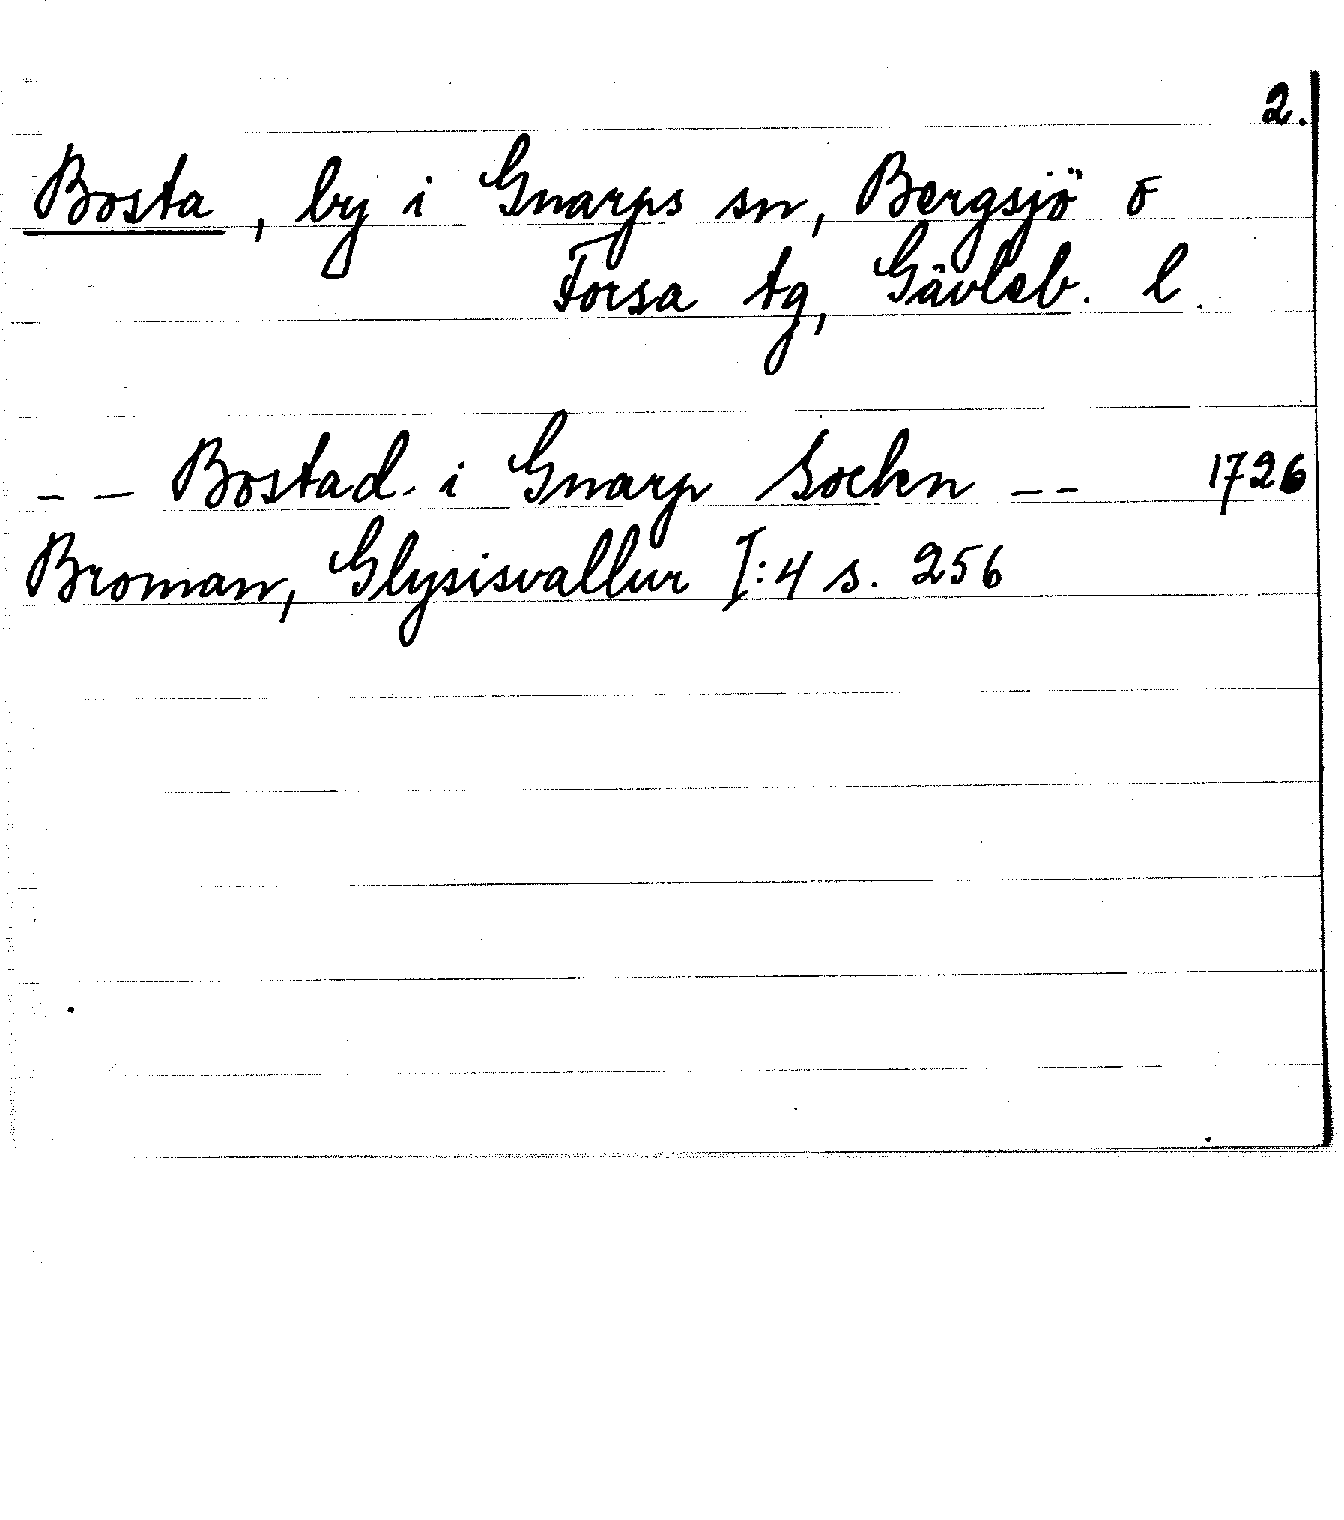 2.
Bosta, by i Gnarps sn, Bergsjö o
Forsa tg, Gävleb. l.
-- Bostad. i Gnarp Sockn -- 1726
Broman, Glysisvallur I:4 s. 256